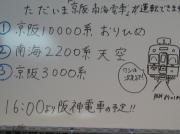 ただいま京阪 南海電車が運転できます
① 京阪10000系 おりひめ
② 南海2200系 天空
③ 京阪3000系
16:00より阪神電車の予定!!